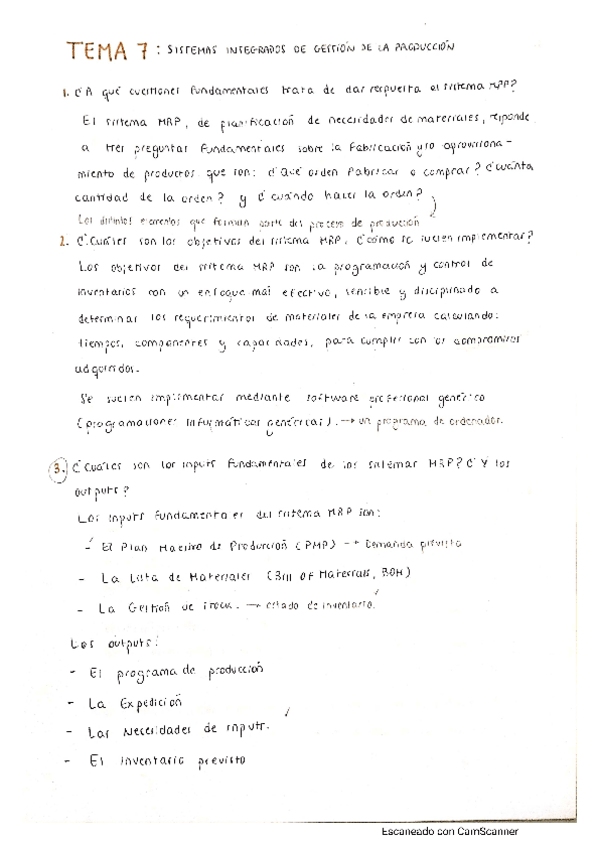 TEMA 7: SISTEMAS INTEGRADOS DE GESTIÓN DE LA PRODUCCIÓN
1. ¿A qué cuestiones fundamentales trata de dar respuesta el sistema MRP?
El sistema MRP, de planificación de necesidades de materiales, responde
a tres preguntas fundamentales sobre la fabricación y/o aprovisiona-
miento de productos que son: ¿Qué orden fabricar o comprar? ¿Cuánta
cantidad de la orden? y ¿cuándo hacer la orden?
Los distintos elementos que forman parte del proceso de producción
2. ¿Cuáles son los objetivos del sistema MRP. ¿Cómo se suelen implementar?
Los objetivos del sistema MRP son la programación y control de
inventarios con un enfoque más efectivo, sensible y disciplinado a
determinar los requerimientos de materiales de la empresa calculando:
tiempos, componentes y capacidades, para cumplir con los compromisos
adquiridos.
Se suelen implementar mediante software profesional genérico
(programaciones informáticas genéricas). → un programa de ordenador.
3. ¿Cuáles son los inputs fundamentales de los sistemas MRP? ¿Y los
outputs?
Los inputs fundamentales del sistema MRP son:
- El Plan Maestro de Producción (PMP) → Demanda prevista
- La Lista de Materiales (Bill of Materials, BOM)
- La Gestión de Stock. → estado de inventario.
Los outputs:
- El programa de producción
- La Expedición
- Las Necesidades de inputs.
- El inventario previsto
Escaneado con CamScanner